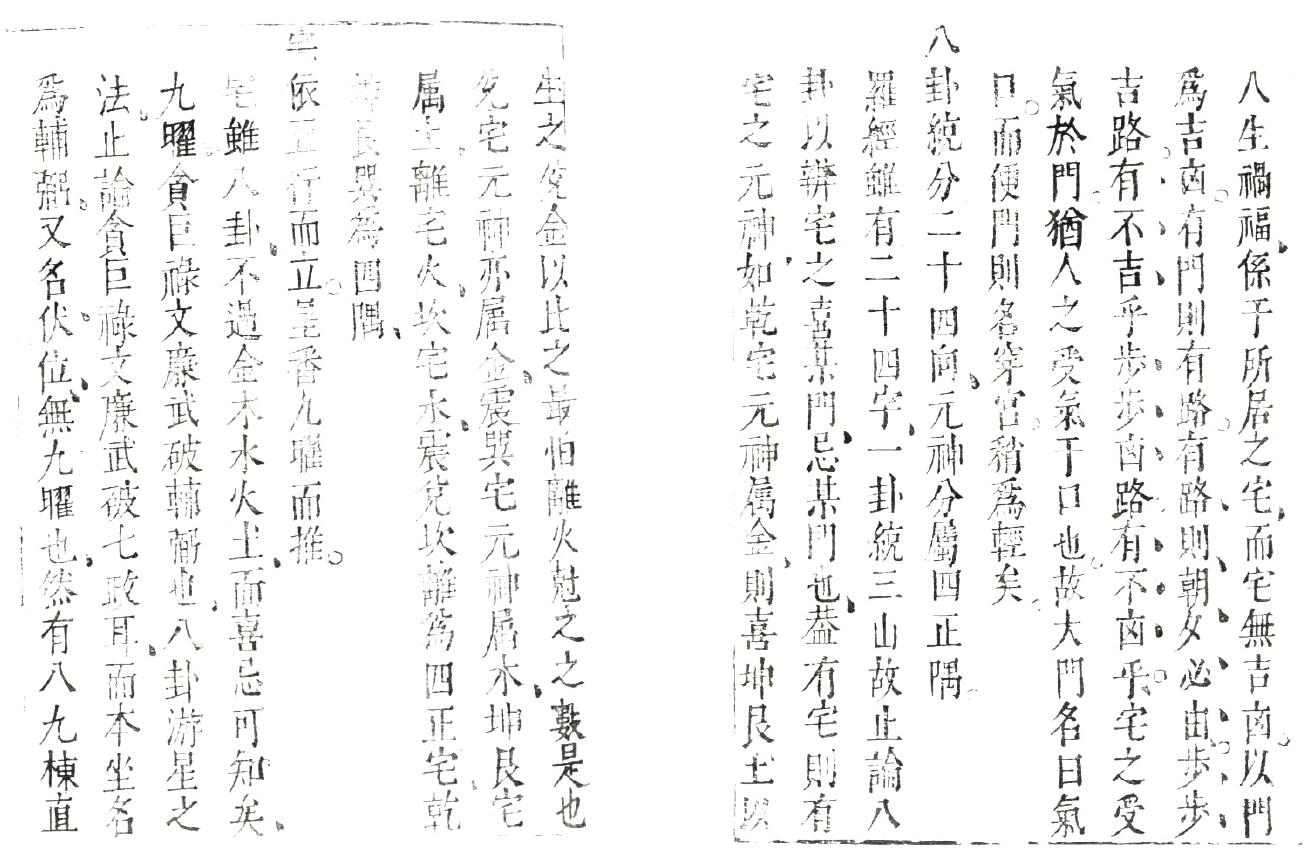 人生禍福係于所居之宅而宅無吉凶以門
爲吉凶有門則有路有路則朝夕必由步步
吉路有不吉乎步步凶路有不凶乎宅之受
氣於門猶人之受氣于口也故大門名曰氣
口而便門則名穿宮稍爲輕矣
八卦統分二十四向元神分屬四正隅
羅經雖有二十四字一卦統三山故止論八
卦以辨宅之喜某門忌某門也葢有宅則有
宅之元神如乾宅元神属金則喜坤艮土以
生之兊金以比之最怕離火尅之之數是也
兊宅元神亦属金震巽宅元神屬木坤艮宅
属土離宅火坎宅水震兊坎離爲四正宅乾
坤艮巽為四隅
宅依五行而立星番九曜而推
宅雖八卦不過金木水火土而喜忌可知矣
九曜貪巨祿文廉武破輔弼也八卦游星之
法止論貪巨祿文廉武破七政耳而本坐名
爲輔弼又名伏位無九曜也然有八九棟直